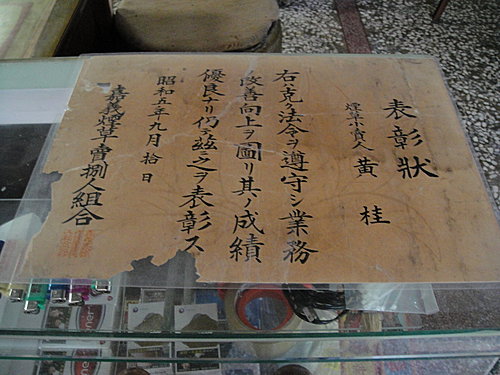 表彰狀
煙草小賣人 黃桂
右ハ克ク法令ヲ遵守シ業務
改善向上ヲ圖リ其ノ成績
優良ナリ仍テ茲ニ之ヲ表彰ス
昭和五年九月拾日
嘉義煙草賣捌人組合